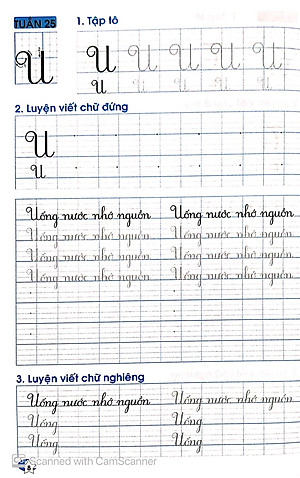 TUẦN 25
1. Tập tô
U U U U U U
U U U U U U
2. Luyện viết chữ đứng
U
U
Uống nước nhớ nguồn Uống nước nhớ nguồn
Uống nước nhớ nguồn Uống nước nhớ nguồn
Uống nước nhớ nguồn Uống nước nhớ nguồn
Uống nước nhớ nguồn Uống nước nhớ nguồn
3. Luyện viết chữ nghiêng
Uống nước nhớ nguồn Uống nước nhớ nguồn
Uống Uống
Uống Uống
Scanned with CamScanner